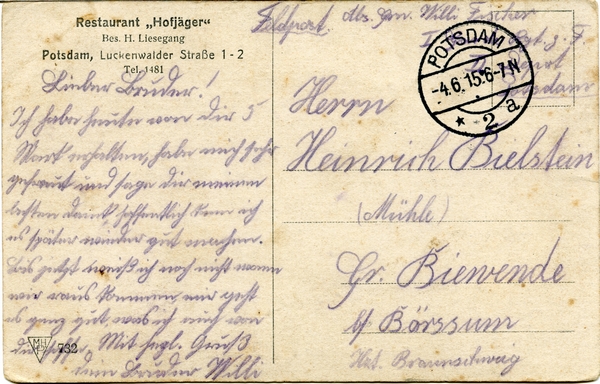 Restaurant „Hofjäger"
Bes. H. Liesegang
Potsdam, Luckenwalder Straße 1-2
Tel. 1481
Lieber Bruder!
Ich habe heute von dir 5
Mark erhalten, habe mich sehr
gefreut und sage dir meinen
besten Dank hoffentlich kann ich
es später wieder gut machen.
Bis jetzt weiß ich noch nicht wann
wir raus kommen, mir geht
es ganz gut, was ich auch von
dir hoffe. Mit herzl. Gruß
dein Bruder Willi
MH
732
Feldpost. Abs. Willi Fischer
Potsdam
POTSDAM
-4.6.15.6-7N
* 2 a
Herrn
Heinrich Bielstein
(Mühle)
Gr. Biewende
b/ Börssum
Hzt. Braunschwag